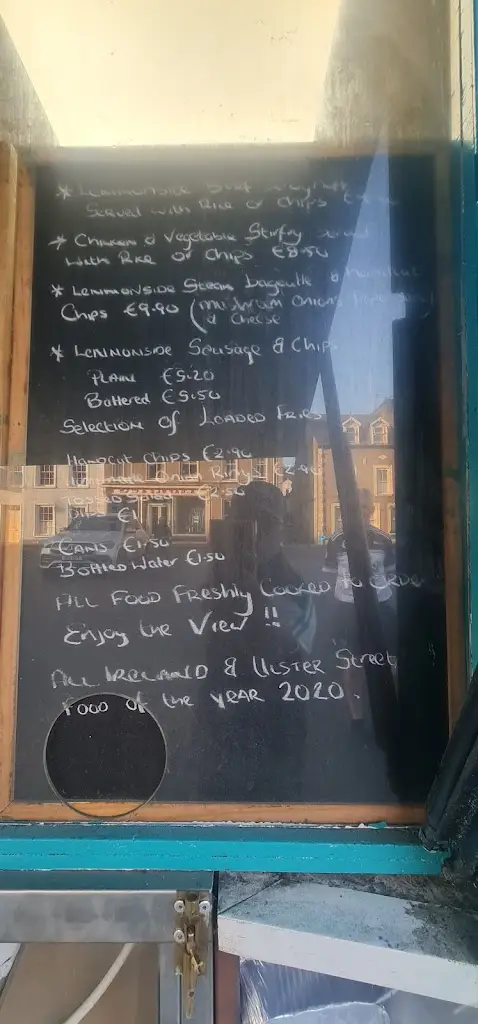 * Lennonside Beef
Served with Rice or Chips
* Chicken & Vegetable Stirfry
with Rice or Chips €8.50
* Lennonside Steak Baguette & handcut
Chips €9.90 (Mushroom Onions
& Cheese
* Lennonside Sausage & Chips
Plain €5.20
Battered €5.50
Selection of Loaded Fries
Handcut Chips €2.90
Homemade Onion Rings €2.90
Tossed Salad €2.50
€1
Cans €1.50
Bottled Water €1.50
All Food Freshly Cooked to Order
Enjoy the View !!
All Ireland & Ulster Street
Food of the year 2020.